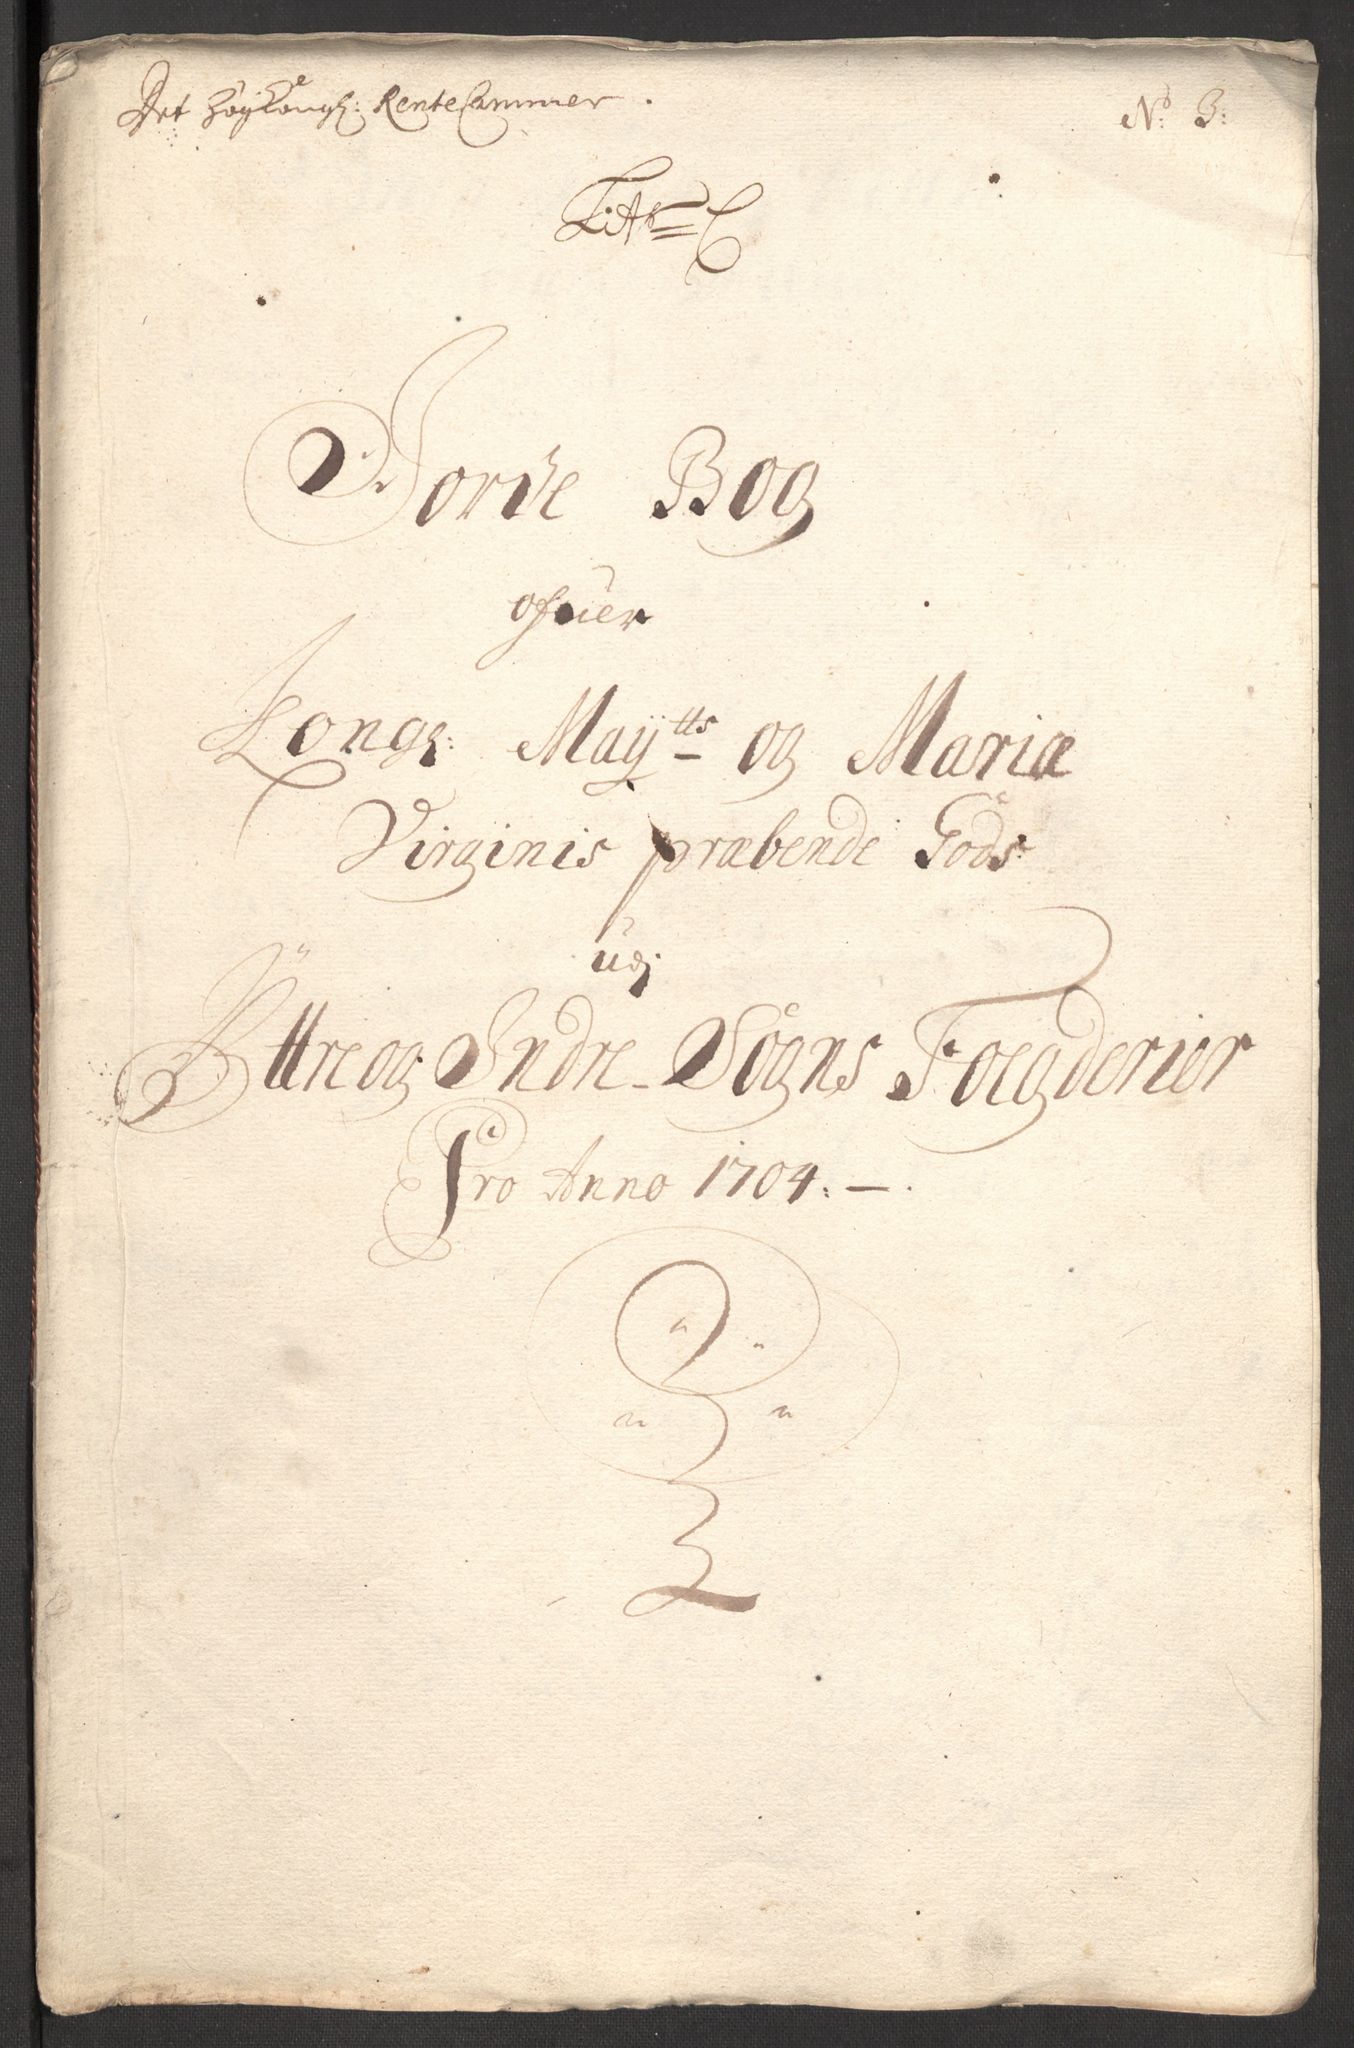 Det HøyKongl: RenteCammer.
No 3:
Litr C
Jorde Bog
ofuer
Kongl: Maÿtts og Mariæ
Virginis præbende Gods
udj
Ÿttre og Indre Sogns Foegderier
Pro Anno 1704.